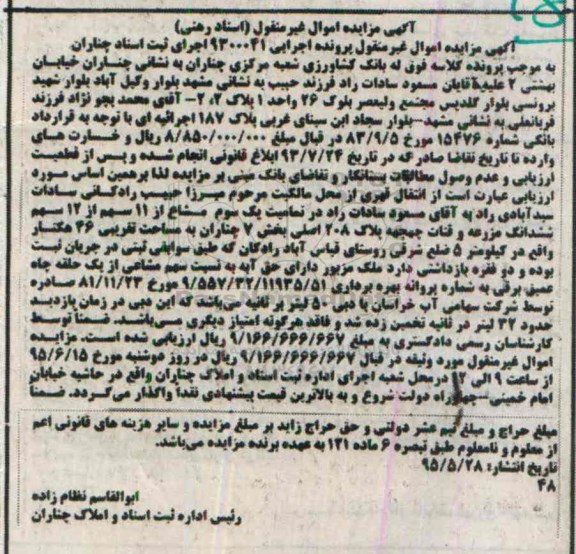 آگهی مزایده اموال غیرمنقول (اسناد رهنی)
آگهی مزایده اموال غیرمنقول پرونده اجرایی ۹۳۰۰۰۴۱ اجرای ثبت اسناد چناران
به موجب پرونده کلاسه فوق له بانک کشاورزی شعبه مرکزی چناران به نشانی چناران خیابان
بهشتی ۲ علیه آقایان مسعود سادات راد فرزند حبیب به نشانی مشهد بلوار وکیل آباد بلوار شهید
برونسی بلوار گلدیس مجتمع ولیعصر بلوک ۲۶ واحد ۱ پلاک ۲، ۲- آقای محمد بجو نژاد فرزند
قربانعلی به نشانی مشهد-بلوار سجاد ابن سینای غربی پلاک ۱۸۷ اجرائیه ای با توجه به قرارداد
بانکی شماره ۱۵۴۷۶ مورخ ۸۳/۹/۵ در قبال مبلغ ۸/۸۵۰/۰۰۰/۰۰۰ ریال و خسارت های
وارده تا تاریخ تقاضا صادر که در تاریخ ۹۳/۷/۲۴ ابلاغ قانونی انجام شده و پس از قطعیت
ارزیابی و عدم وصول مطالبات بستانکار و تقاضای بانک مبنی بر مزایده لذا برهمین اساس مورد
ارزیابی عبارت است از انتقال قهری از محل مالکیت مرحوم میرزا حبیب رادکانی سادات
سیدآبادی راد به آقای مسعود سادات راد در تمامیت یک سوم مشاع از ۱۱ سهم از ۱۲ سهم
ششدانگ مزرعه و قنات جمبجه پلاک ۲۰۸ اصلی بخش ۷ چناران به مساحت تقریبی ۴۶ هکتار
واقع در کیلومتر ۵ ضلع شرقی روستای قیاس آباد رادکان که طبق سوابق ثبتی در جریان ثبت
بوده و دو فقره بازداشتی دارد ملک مزبور دارای حق آبه به نسبت سهم مشاعی از یک حلقه چاه
عمیق برقی به شماره پروانه بهره برداری ۹/۵۵۷/۳۲/۱۱۹۳۵/۵۱ مورخ ۸۱/۱۱/۲۳ صادره
توسط شرکت سهامی آب خراسان با دبی ۵۰ لیتر بر ثانیه می‌باشد که این دبی در زمان بازدید
حدود ۳۲ لیتر در ثانیه تخمین زده شد و فاقد هرگونه امتیاز دیگری می‌باشد. ضمناً توسط
کارشناسان رسمی دادگستری به مبلغ ۹/۱۶۶/۶۶۶/۶۶۷ ریال ارزیابی شده است. مزایده
اموال غیرمنقول مورد وثیقه در قبال ۹/۱۶۶/۶۶۶/۶۶۷ ریال در روز دوشنبه مورخ ۹۵/۶/۱۵
از ساعت ۹ الی ۱۲ درمحل شعبه اجرای اداره ثبت اسناد و املاک چناران واقع در حاشیه خیابان
امام خمینی-چهارراه دولت شروع و به بالاترین قیمت پیشنهادی نقداً واگذار می‌گردد. ضمناً
مبلغ حراج و مبلغ نیم عشر دولتی و حق حراج زاید بر مبلغ مزایده و سایر هزینه های قانونی اعم
از معلوم و نامعلوم طبق تبصره ۶ ماده ۱۲۱ به عهده برنده مزایده می‌باشد.
تاریخ انتشار: ۹۵/۵/۲۸
۴۸
ابوالقاسم نظام زاده
رئیس اداره ثبت اسناد و املاک چناران